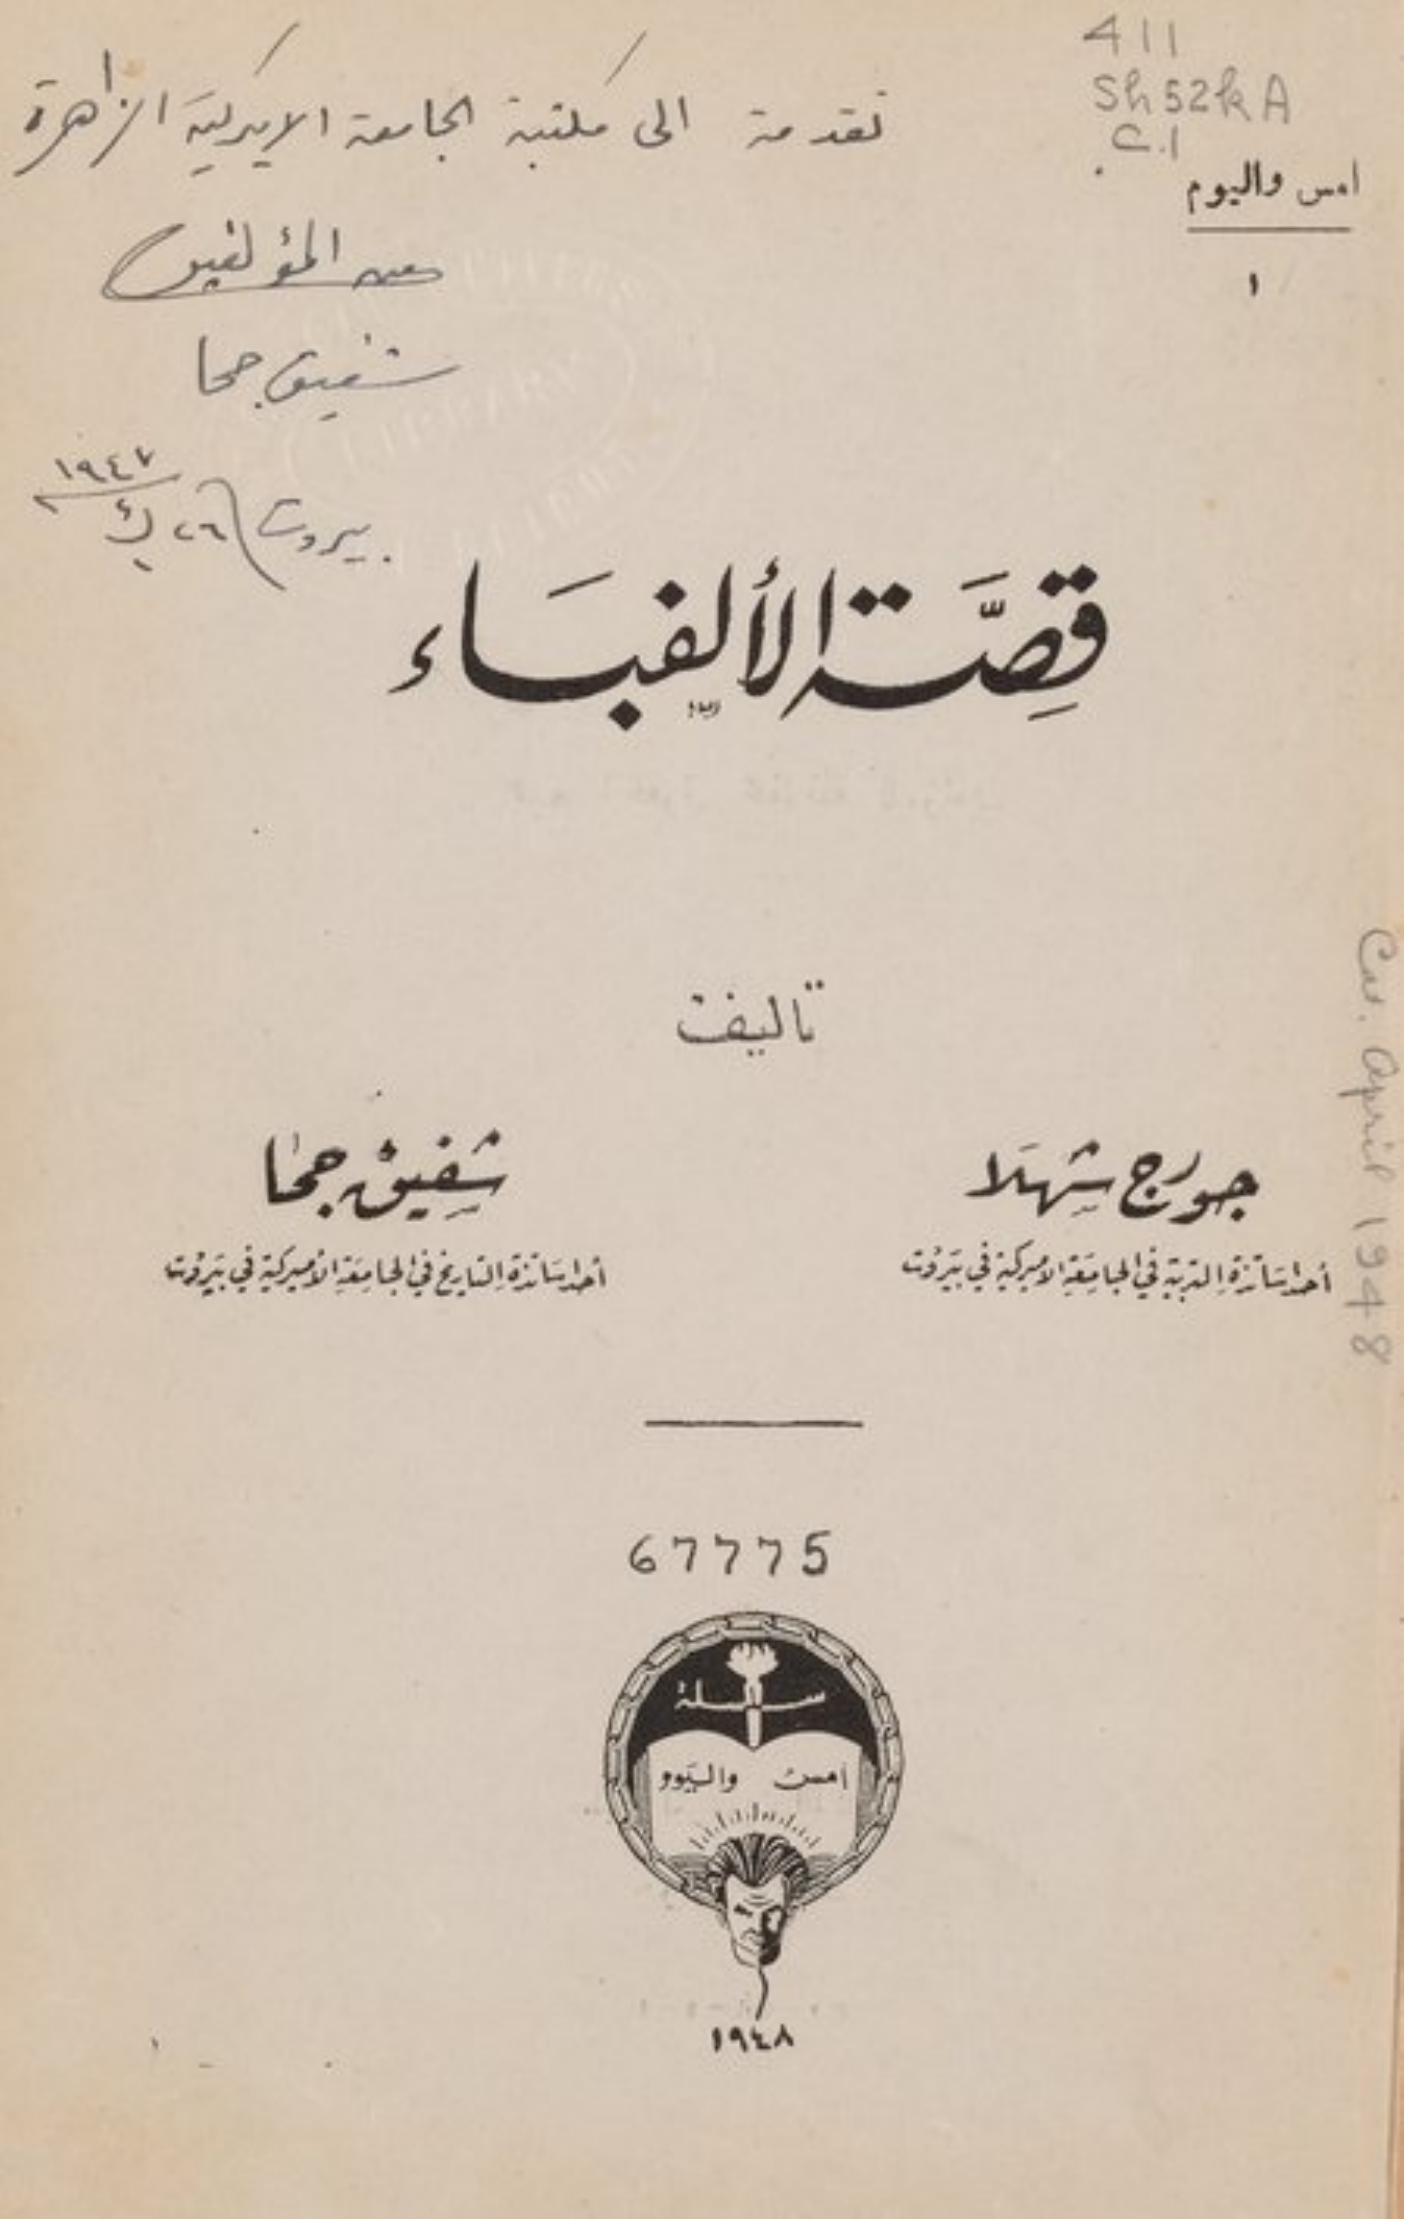 411
Sh52kA
C.1
امس واليوم
١
تقدمة الى مكتبة الجامعة الاميركية الزاهرة
من المؤلفين
شفيق جحا
بيروت ٢٦ ك١ ١٩٤٧
قِصَّة الألفبَاء
تأليف
جورج شهلا
أحد اساتذة التربية في الجامعة الاميركية في بيروت
شفيق جحا
أحد اساتذة التاريخ في الجامعة الأميركية في بيروت
Cat. April 1948
67775
سلسلة
امس واليوم
١٩٤٨